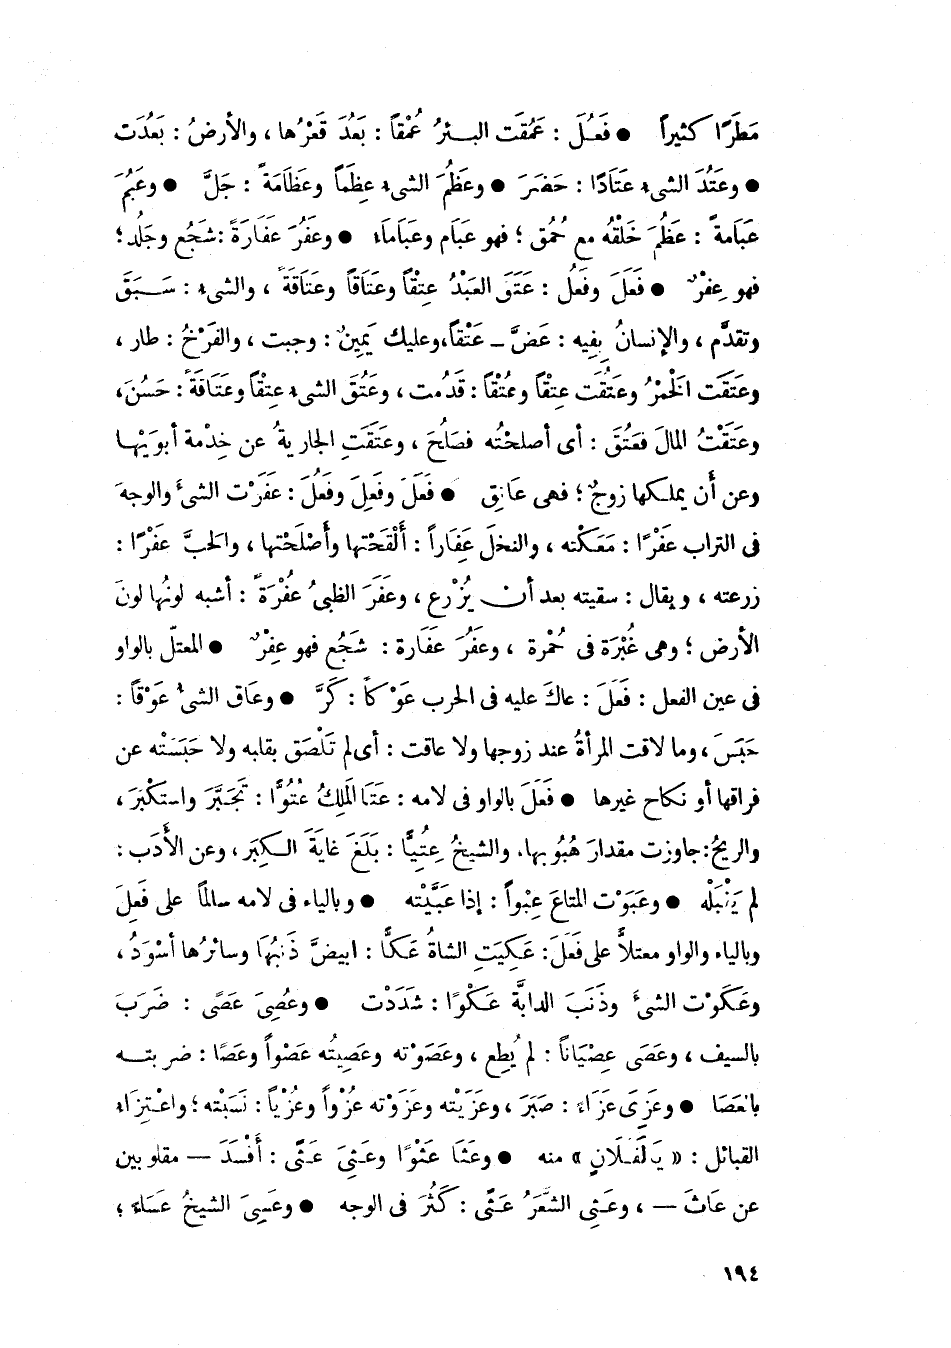 مَطَرًا كثيراً ● فَعُلَ : عَمُقَت البـئرُ عُمْقاً : بَعُدَ قَعْرُها ، والأرضُ : بَعُدَت
● وعَتُدَ الشىء عَتَادًا : حَضَرَ ● وعَظُمَ الشىء عِظَماً وعَظَامَةً : جَلَّ ● وعَبُمَ
عَبَامةً : عَظُمَ خَلْقُه مع حُمُق ؛ فهو عَبَام وعَبَاماَء ● وعَفُرَ عَفَارَةً : شَجُع وجَلُد ؛
فهو عِفْرٌ ● فَعَلَ وفَعُل : عَتَقَ العَبْدُ عِتْقاً وعَتَاقاً وعَتَاقَةً ، والشىء : سَـبَقَ
وتقدَّم ، والإنسانُ بِفِيه : عَضَّ ــ عَتْقاً ، وعليك يَمِينٌ : وجبت ، والفَرْخُ : طار ،
وعَتَقَت الخَمْرُ وعَتُقَت عِتْقاً وعُتْقاً : قَدُمت ، وعَتُقَ الشىء عِتْقاً وعَتَاقَةً : حَسُنَ ،
وعَتَقْتُ المَالَ فَعَتُقَ : أى أصلحْتُه فصَلُحَ ، وعَتَقَتِ الجارية عن خِدْمة أبوَيْهـا
وعن أن يملـكها زوجٌ ؛ فهى عَاتِق ● فَعَلَ وفَعِلَ وفَعُلَ : عفَرْت الشىءَ والوجهَ
فى التراب عَفْرًا : مَعَكْته ، والنخلَ عَفَاراً : ألْقَحْتها وأصْلَحْتها ، والحَبَّ عَفْرًا :
زرعته ، ويقال : سقيته بعد أنـْ يُزْرع ، وعَفَرَ الظبىُ عُفْرَةً : أشبه لونُها لونَ
الأرض ؛ وهى غُبْرَة فى حُمْرة ، وعَفُرَ عَفَارة : شَجُع فهو عِفْرٌ ● المعتلّ بالواو
فى عين الفعل : فَعَلَ : عاكَ عليه فى الحرب عَوْكاً : كَرَّ ● وعَاق الشىءَ عَوْقاً :
حَبَسَ ، وما لاقت المرأةُ عند زوجها ولا عاقت : أى لم تَلْصَق بقلبه ولا حَبَسَتْه عن
فراقها أو نكاح غيرها ● فَعَلَ بالواو فى لامه : عَتَا المَلِكُ عُتُوًّا : تَجَبَّرَ واستكْبَرَ ،
والريحُ : جاوزت مقدارَ هُبُوبها ، والشيخُ عِتِيًّا : بَلَغَ غايَةَ الـكِبَر ، وعن الأَدَب :
لم يَنْبَلْه ● وعَبَوْت المتاعَ عبْواً : إذا عَبَّيْته ● وبالياء فى لامه سالماً على فَعِلَ
وبالياء والواو معتلاً على فَعَلَ : عَكِيَتِ الشاةُ عَكًا : ابيضَّ ذَنبُهَا وسائرُها أسْوَدُ ،
وعَكَوْت الشىءَ وذَنَبَ الدابَّة عَـكْوًا : شَدَدْت ● وعُصِىَ عَصًى : ضَرَبَ
بالسيف ، وعَصَى عِصْيَاناً : لم يُطِع ، وعَصَوْته وعَصِيتُه عَصْواً وعَصًا : ضربتـه
بالعَصَا ● وعَزِىَ عَزَاءً : صَبَرَ ، وعَزَيْته وعَزَوْته عزْواً وعُزْياً : نَسَبْته ؛ واعْتِزَاء
القبائل : « يَالَفُـلَانٍ » منه ● وعَثَا عَثْوًا وعَـثِىَ عَـثًى : أفْسَدَ — مقلوبين
عن عَاثَ — ، وعَـثِى الشَّعَرُ عَـثًى : كَثُرَ فى الوجه ● وعَسِىَ الشيخُ عَسَاءً ؛
١٩٤